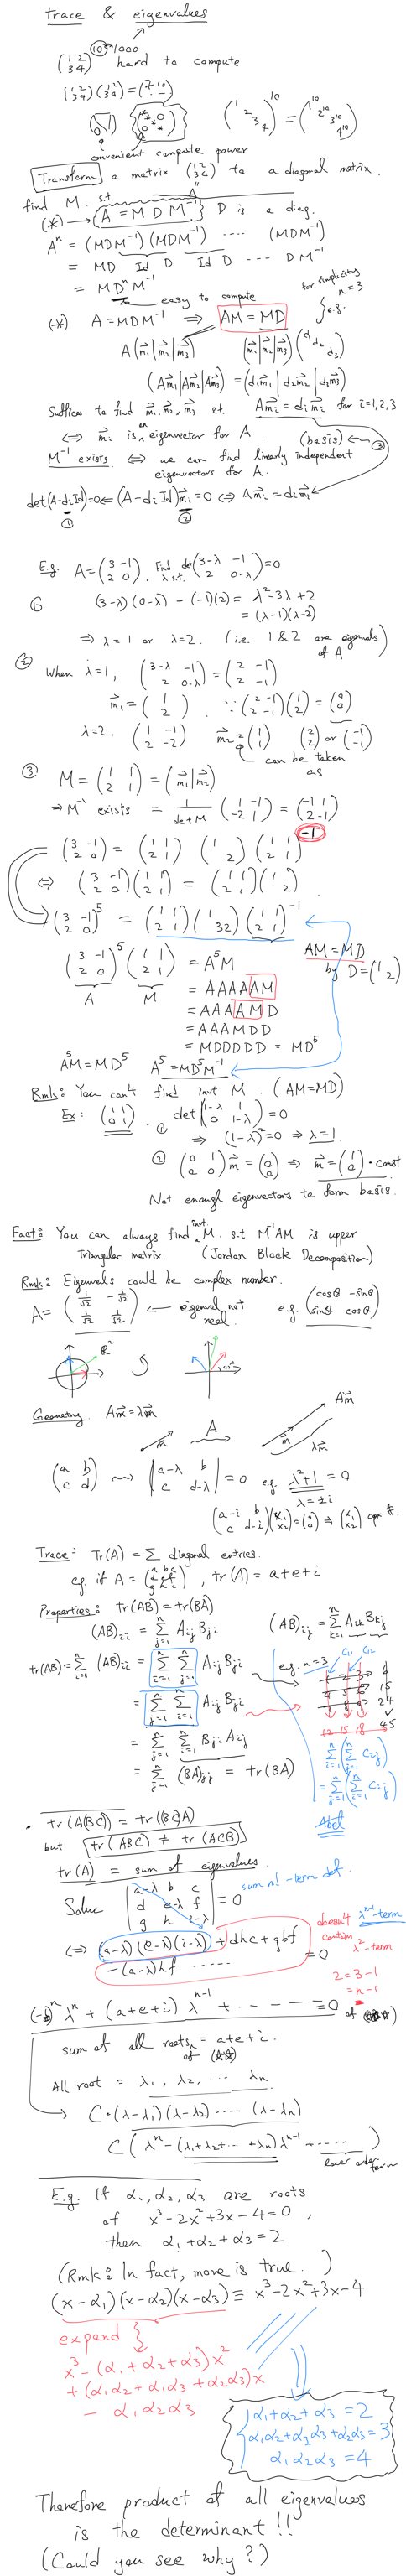 trace & eigenvalues
(1 2 / 3 4)^10 or 1000 hard to compute
(1 2 / 3 4)(1 2 / 3 4) = (7 10 / - -)
(1 2 3 4)^10 = (1^10 2^10 3^10 4^10)
convenient compute power
Transform a matrix (1 2 / 3 4) to a diagonal matrix.
find M. s.t. A
(*) → {A = M D M^-1} D is a diag.
A^n = (MDM^-1)(MDM^-1) ---- (MDM^-1)
= MD Id D Id D --- DM^-1
= M D^n M^-1
easy to compute
for simplicity n=3
(*) A = MDM^-1 ⇒ AM = MD } e.g.
A(m1|m2|m3) (m1|m2|m3)(d1 d2 d3)
(Am1|Am2|Am3) = (d1m1|d2m2|d3m3)
Suffices to find m1, m2, m3 s.t. Ami = di mi for i=1,2,3
⇔ mi is an eigenvector for A. (basis) ← ③
M^-1 exists ⇔ we can find linearly independent
eigenvectors for A.
det(A-diId)=0 ⇐ (A-diId)mi=0 ⇔ Ami=dimi
① ②
E.g. A = (3 -1 / 2 0). Find λ s.t. det(3-λ -1 / 2 0-λ)=0
① (3-λ)(0-λ) - (-1)(2) = λ²-3λ+2
= (λ-1)(λ-2)
⇒ λ=1 or λ=2. (i.e. 1 & 2 are eigenvals of A)
② when λ=1, (3-λ -1 / 2 0-λ) = (2 -1 / 2 -1)
m1 = (1 / 2) ∵ (2 -1 / 2 -1)(1 / 2) = (0 / 0)
λ=2, (1 -1 / 2 -2) m2 = (1 / 1) (2 / 2) or (-1 / -1)
can be taken as
③ M = (1 1 / 2 1) = (m1|m2)
⇒ M^-1 exists = 1/det M (1 -1 / -2 1) = (-1 1 / 2 -1)
(3 -1 / 2 0) = (1 1 / 2 1)(1 2)(1 1 / 2 1)^-1
⇔ (3 -1 / 2 0)(1 1 / 2 1) = (1 1 / 2 1)(1 2)
(3 -1 / 2 0)^5 = (1 1 / 2 1)(1 32)(1 1 / 2 1)^-1
(3 -1 / 2 0)^5 (1 1 / 2 1) = A^5M
AM = MD
by D = (1 2)
A M = AAAAAM
= AAAAMD
= AAAMDD
= MDDDDD = MD^5
A^5M = MD^5 A^5 = MD^5M^-1
Rmk: You can't find invt M. (AM=MD)
Ex: (1 1 / 0 1). ① det(1-λ 1 / 0 1-λ)=0
⇒ (1-λ)²=0 ⇒ λ=1
② (0 1 / 0 0)m = (0 / 0) ⇒ m = (1 / 0)·const
Not enough eigenvectors to form basis.
Fact: You can always find invt. M. s.t M^-1AM is upper
triangular matrix. (Jordan Block Decomposition)
Rmk: Eigenvals could be complex number.
A = (1/√2 -1/√2 / 1/√2 1/√2) ← eigenval not real. e.g. (cosθ -sinθ / sinθ cosθ)
R²
Geometry. Am = λm
m A m Am λm
(a b / c d) ⇝ |a-λ b / c d-λ| = 0 e.g. λ²+1 = 0
λ=±i
(a-i b / c d-i)(x1 / x2) = (0 / 0) ⇒ (x1 / x2) cpx #.
Trace: Tr(A) = Σ diagonal entries.
eg. if A = (a b c / d e f / g h i), tr(A) = a+e+i
Properties: tr(AB) = tr(BA)
(AB)ii = Σ j=1 n Aij Bji (AB)ij = Σ k=1 n Aik Bkj
tr(AB) = Σ i=1 n (AB)ii = Σ i=1 n Σ j=1 n Aij Bji
= Σ j=1 n Σ i=1 n Aij Bji
= Σ j=1 n Σ i=1 n Bji Aij
= Σ j=1 n (BA)jj = tr(BA)
e.g. n=3 C11 C12
1 2 3 6
4 5 6 15
7 8 9 24
12 15 18 45
Σ i=1 n (Σ j=1 n Cij)
= Σ j=1 n (Σ i=1 n Cij)
Abel
• tr(A(BC)) = tr((BC)A)
but tr(ABC) ≠ tr(ACB)
tr(A) = sum of eigenvalues.
Solve |a-λ b c / d e-λ f / g h i-λ| = 0
sum n! -term def.
⇔ (a-λ)(e-λ)(i-λ) + dhc + gbf
-(a-λ)hf ..... = 0
doesn't contain λ^n-1-term
λ²-term
2=3-1
=n-1
(-1)^n λ^n + (a+e+i) λ^n-1 + ---- = 0
sum of all roots of (**) = a+e+i.
All root = λ1, λ2, ... λn
→ C·(λ-λ1)(λ-λ2)....(λ-λn)
C(λ^n - (λ1+λ2+... +λn)λ^n-1 + .....)
lower order term
E.g. If α1, α2, α3 are roots
of x³-2x²+3x-4=0,
then α1+α2+α3=2
(Rmk: In fact, more is true. )
(x-α1)(x-α2)(x-α3) ≡ x³-2x²+3x-4
expand
x³-(α1+α2+α3)x²
+(α1α2+α1α3+α2α3)x
- α1α2α3
α1+α2+α3=2
α1α2+α1α3+α2α3=3
α1α2α3=4
Therefore product of all eigenvalues
is the determinant!!
(Could you see why?)